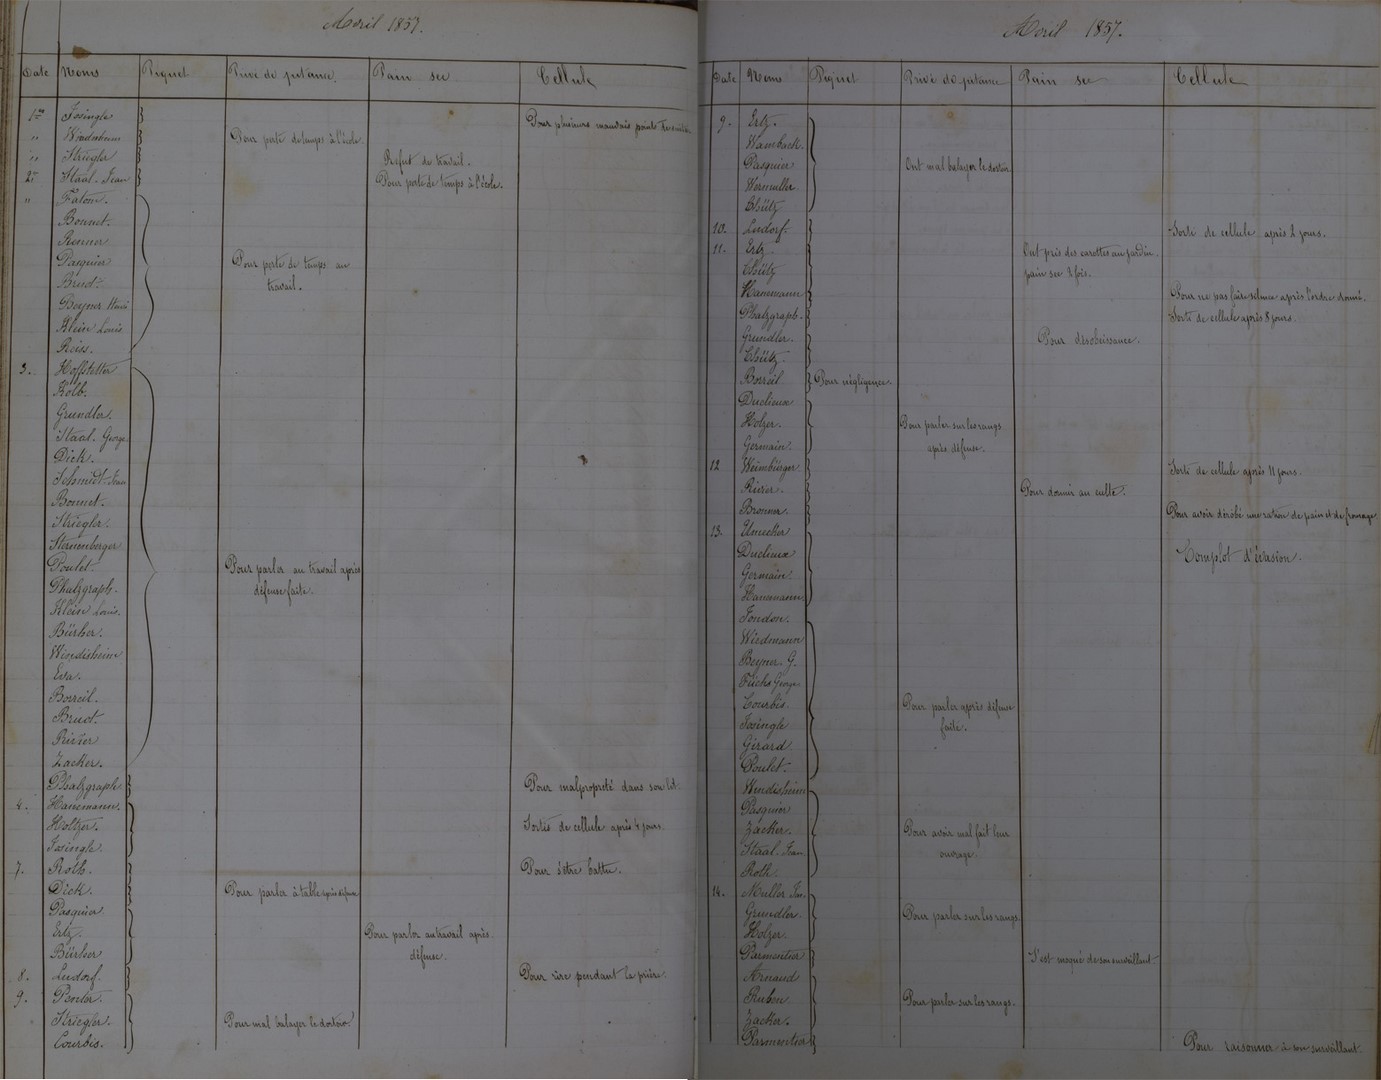 Avril 1857.
Date Noms Piquet Privé de pitance. Pain sec Cellule
1er Issingle Pour plusieurs mauvais points
" Windisheim Pour perte de temps à l'école.
" Striegler Refus de travail.
2 Staal-Jean Pour perte de temps à l'école.
" Fatom.
Bonnet.
Renner
Pasquier Pour perte de temps au
Bruot. travail.
Beyner Henri
Klein Louis
Reiss.
3. Hoffstetter
Kolb.
Grundler.
Staal. George
Dick.
Schmidt-Jean
Bonnet.
Striegler.
Sternenberger
Poulet. Pour parler au travail après
Phalzgraph. défense faite.
Klein Louis.
Bürher.
Windisheim
Eva.
Borreil.
Bruot.
Rivier
Zacker.
Phalzgraph. Pour malpropreté dans son lit.
4. Hanemann.
Holtzer. Sortis de cellule après 4 jours.
Issingle.
7. Roth. Pour s'être battu.
Dick. Pour parler à table après défense
Pasquier
Ertz. Pour parler au travail après
Bürher défense.
8. Ludorf. Pour rire pendant la prière.
9. Penter.
Striegler. Pour mal balayer le dortoir.
Courbis.
Avril 1857.
Date Noms Piquet Privé de pitance Pain sec Cellule
9. Ertz.
Wambach.
Pasquier Ont mal balayer le dortoir
Wermuller
Chütz
10. Ludorf. Sorti de cellule après 2 jours.
11. Ertz Ont pris des carottes au jardin.
Chütz pain sec 2 fois.
Hanemann Pour ne pas faire silence après l'ordre donné.
Phalzgraph. Sorti de cellule après 8 jours.
Grundler. Pour désobeissance.
Chütz.
Borreil Pour négligence.
Duclieux
Holzer. Pour parler sur les rangs
Germain. après défense.
12 Weinbürger. Sorti de cellule après 11 jours.
Rivier. Pour dormir au culte.
Bronner. Pour avoir dérobé une ration de pain et de fromage.
13. Umecker
Duclieux Complot d'évasion.
Germain.
Hanemann
Jondon.
Wiedmann
Beyner G.
Fuchs George.
Courbis. Pour parler après défense
Issingle faite.
Girard.
Poulet.
Windisheim
Pasquier
Zacker. Pour avoir mal fait leur
Staal-Jean ouvrage.
Roth.
14. Muller Jean.
Grundler. Pour parler sur les rangs.
Holzer.
Parmentier S'est moqué de son surveillant
Arnaud
Ruben Pour parler sur les rangs.
Zacker.
Parmentier Pour raisonner à son surveillant.